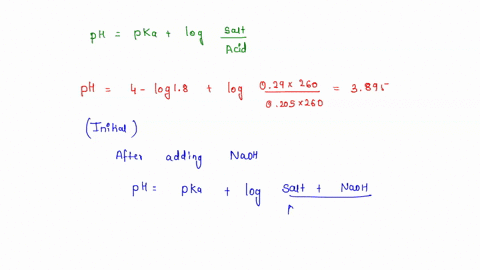 pH = pKa + log Salt / Acid
pH = 4 - log 1.8 + log 0.29 x 260 / 0.205 x 260 = 3.895
(Initial)
After adding NaOH
pH = pKa + log Salt + NaOH